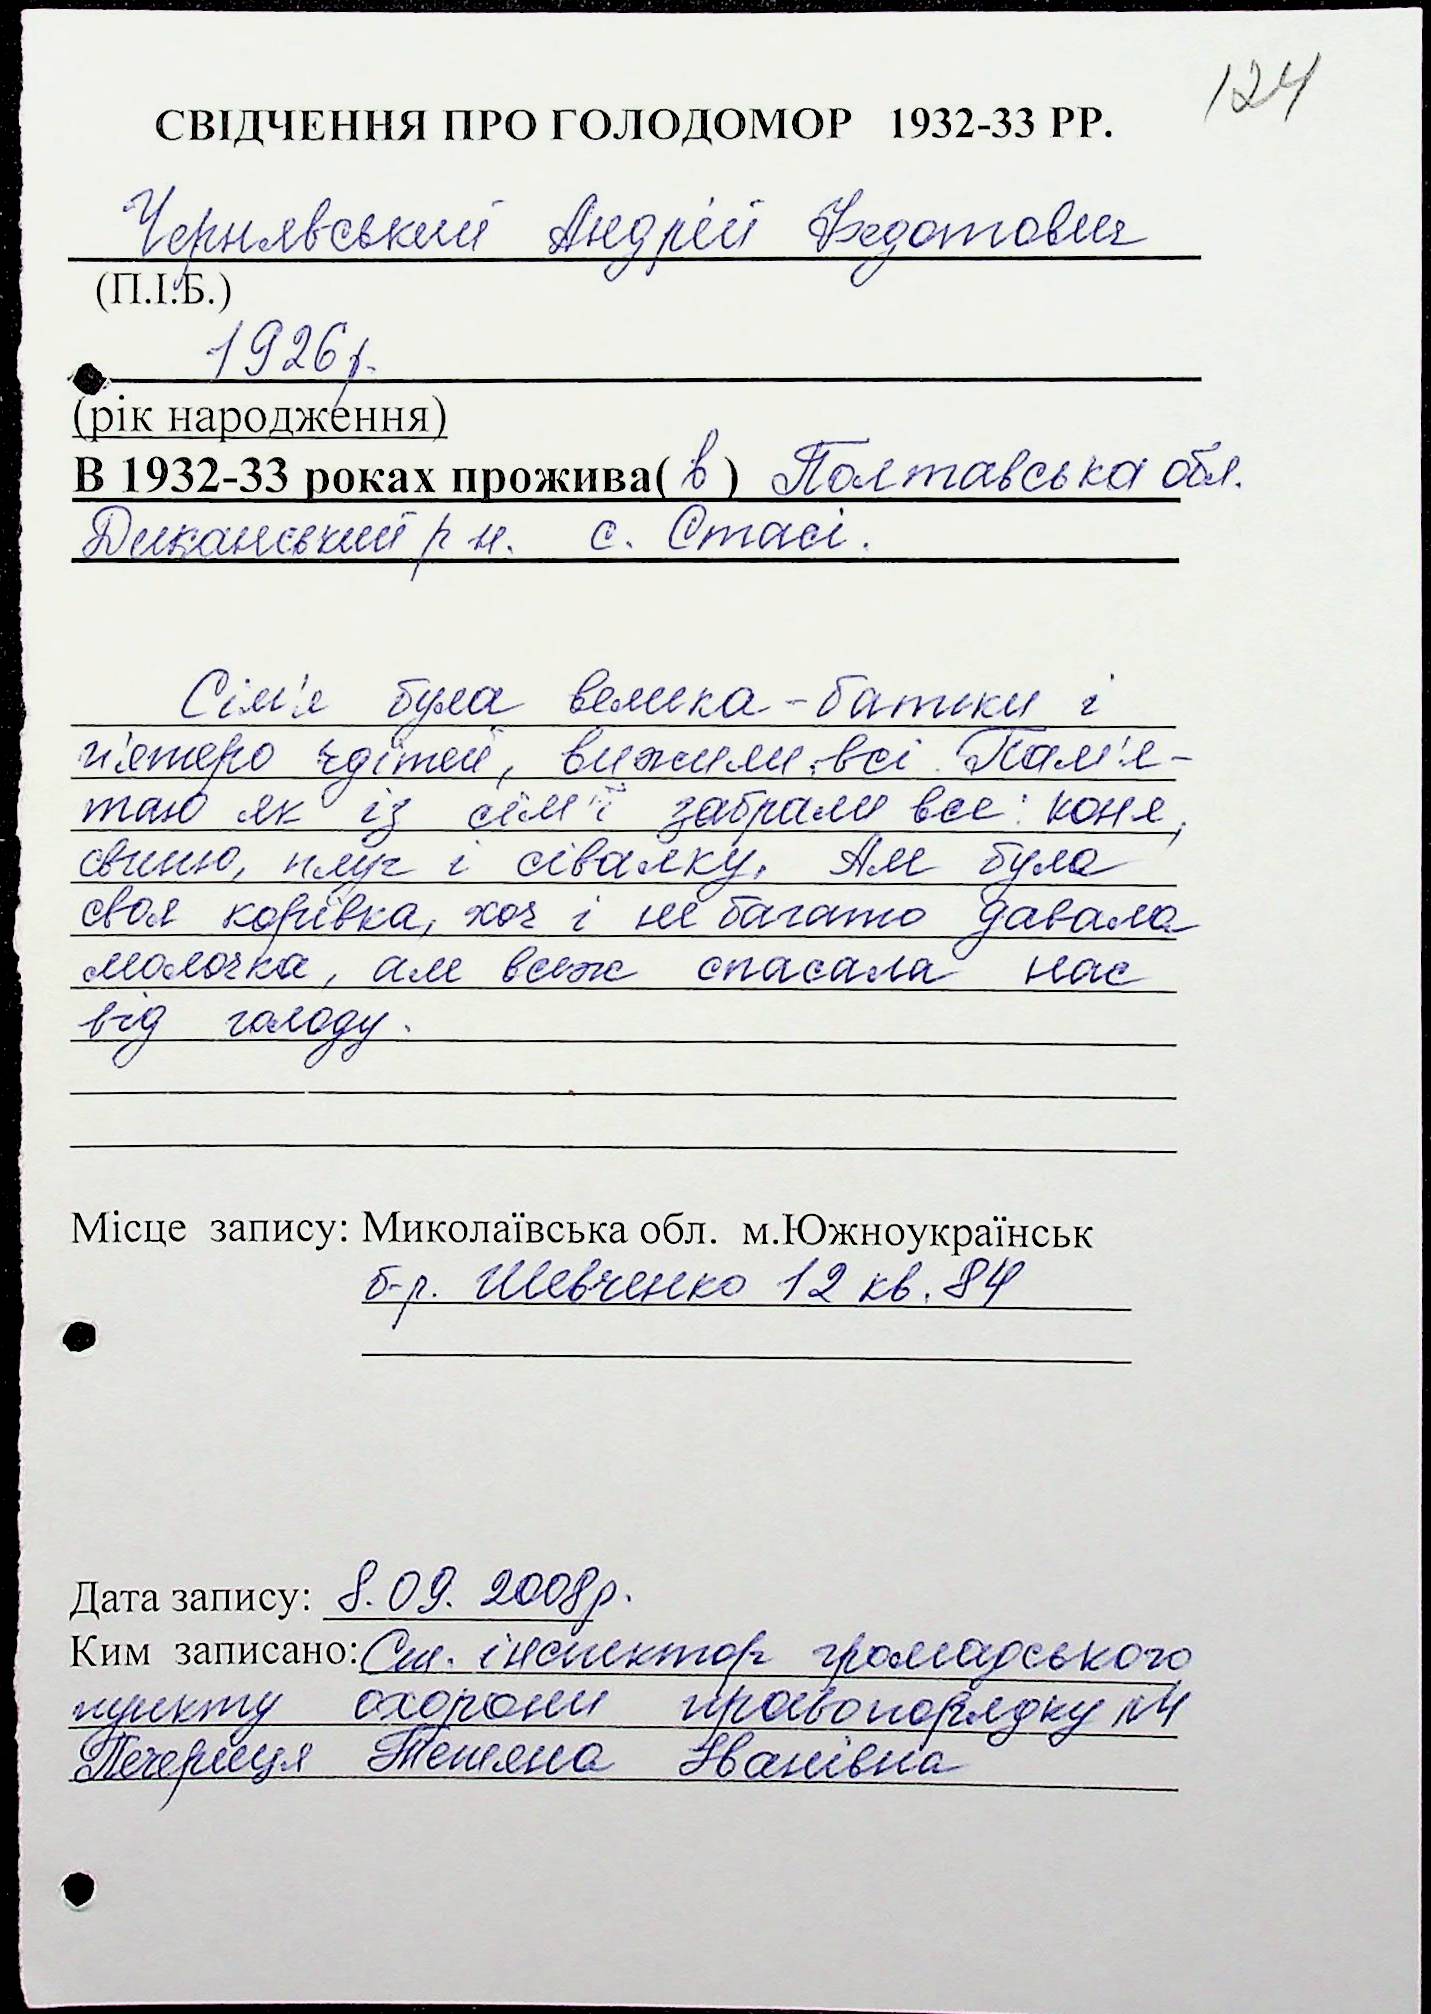 124
СВІДЧЕННЯ ПРО ГОЛОДОМОР 1932-33 РР.
Чернявський Андрій Федотович
(П.І.Б.)
1926 р.
(рік народження)
В 1932-33 роках прожива( в ) Полтавська обл.
Диканський р н. с. Стасі.
Сім'я була велика - батьки і
п'ятеро дітей, вижили всі. Пам'я-
таю як із сім'ї забрали все: коня,
свиню, плуг і сівалку. Але була
своя корівка, хоч і не багато давала
молочка, але всеж спасала нас
від голоду.
Місце запису: Миколаївська обл. м.Южноукраїнськ
б-р. Шевченко 12 кв. 84
Дата запису: 8.09. 2008 р.
Ким записано: Ст. інспектор громадського
пункту охорони правопорядку №4
Печериця Тетяна Іванівна